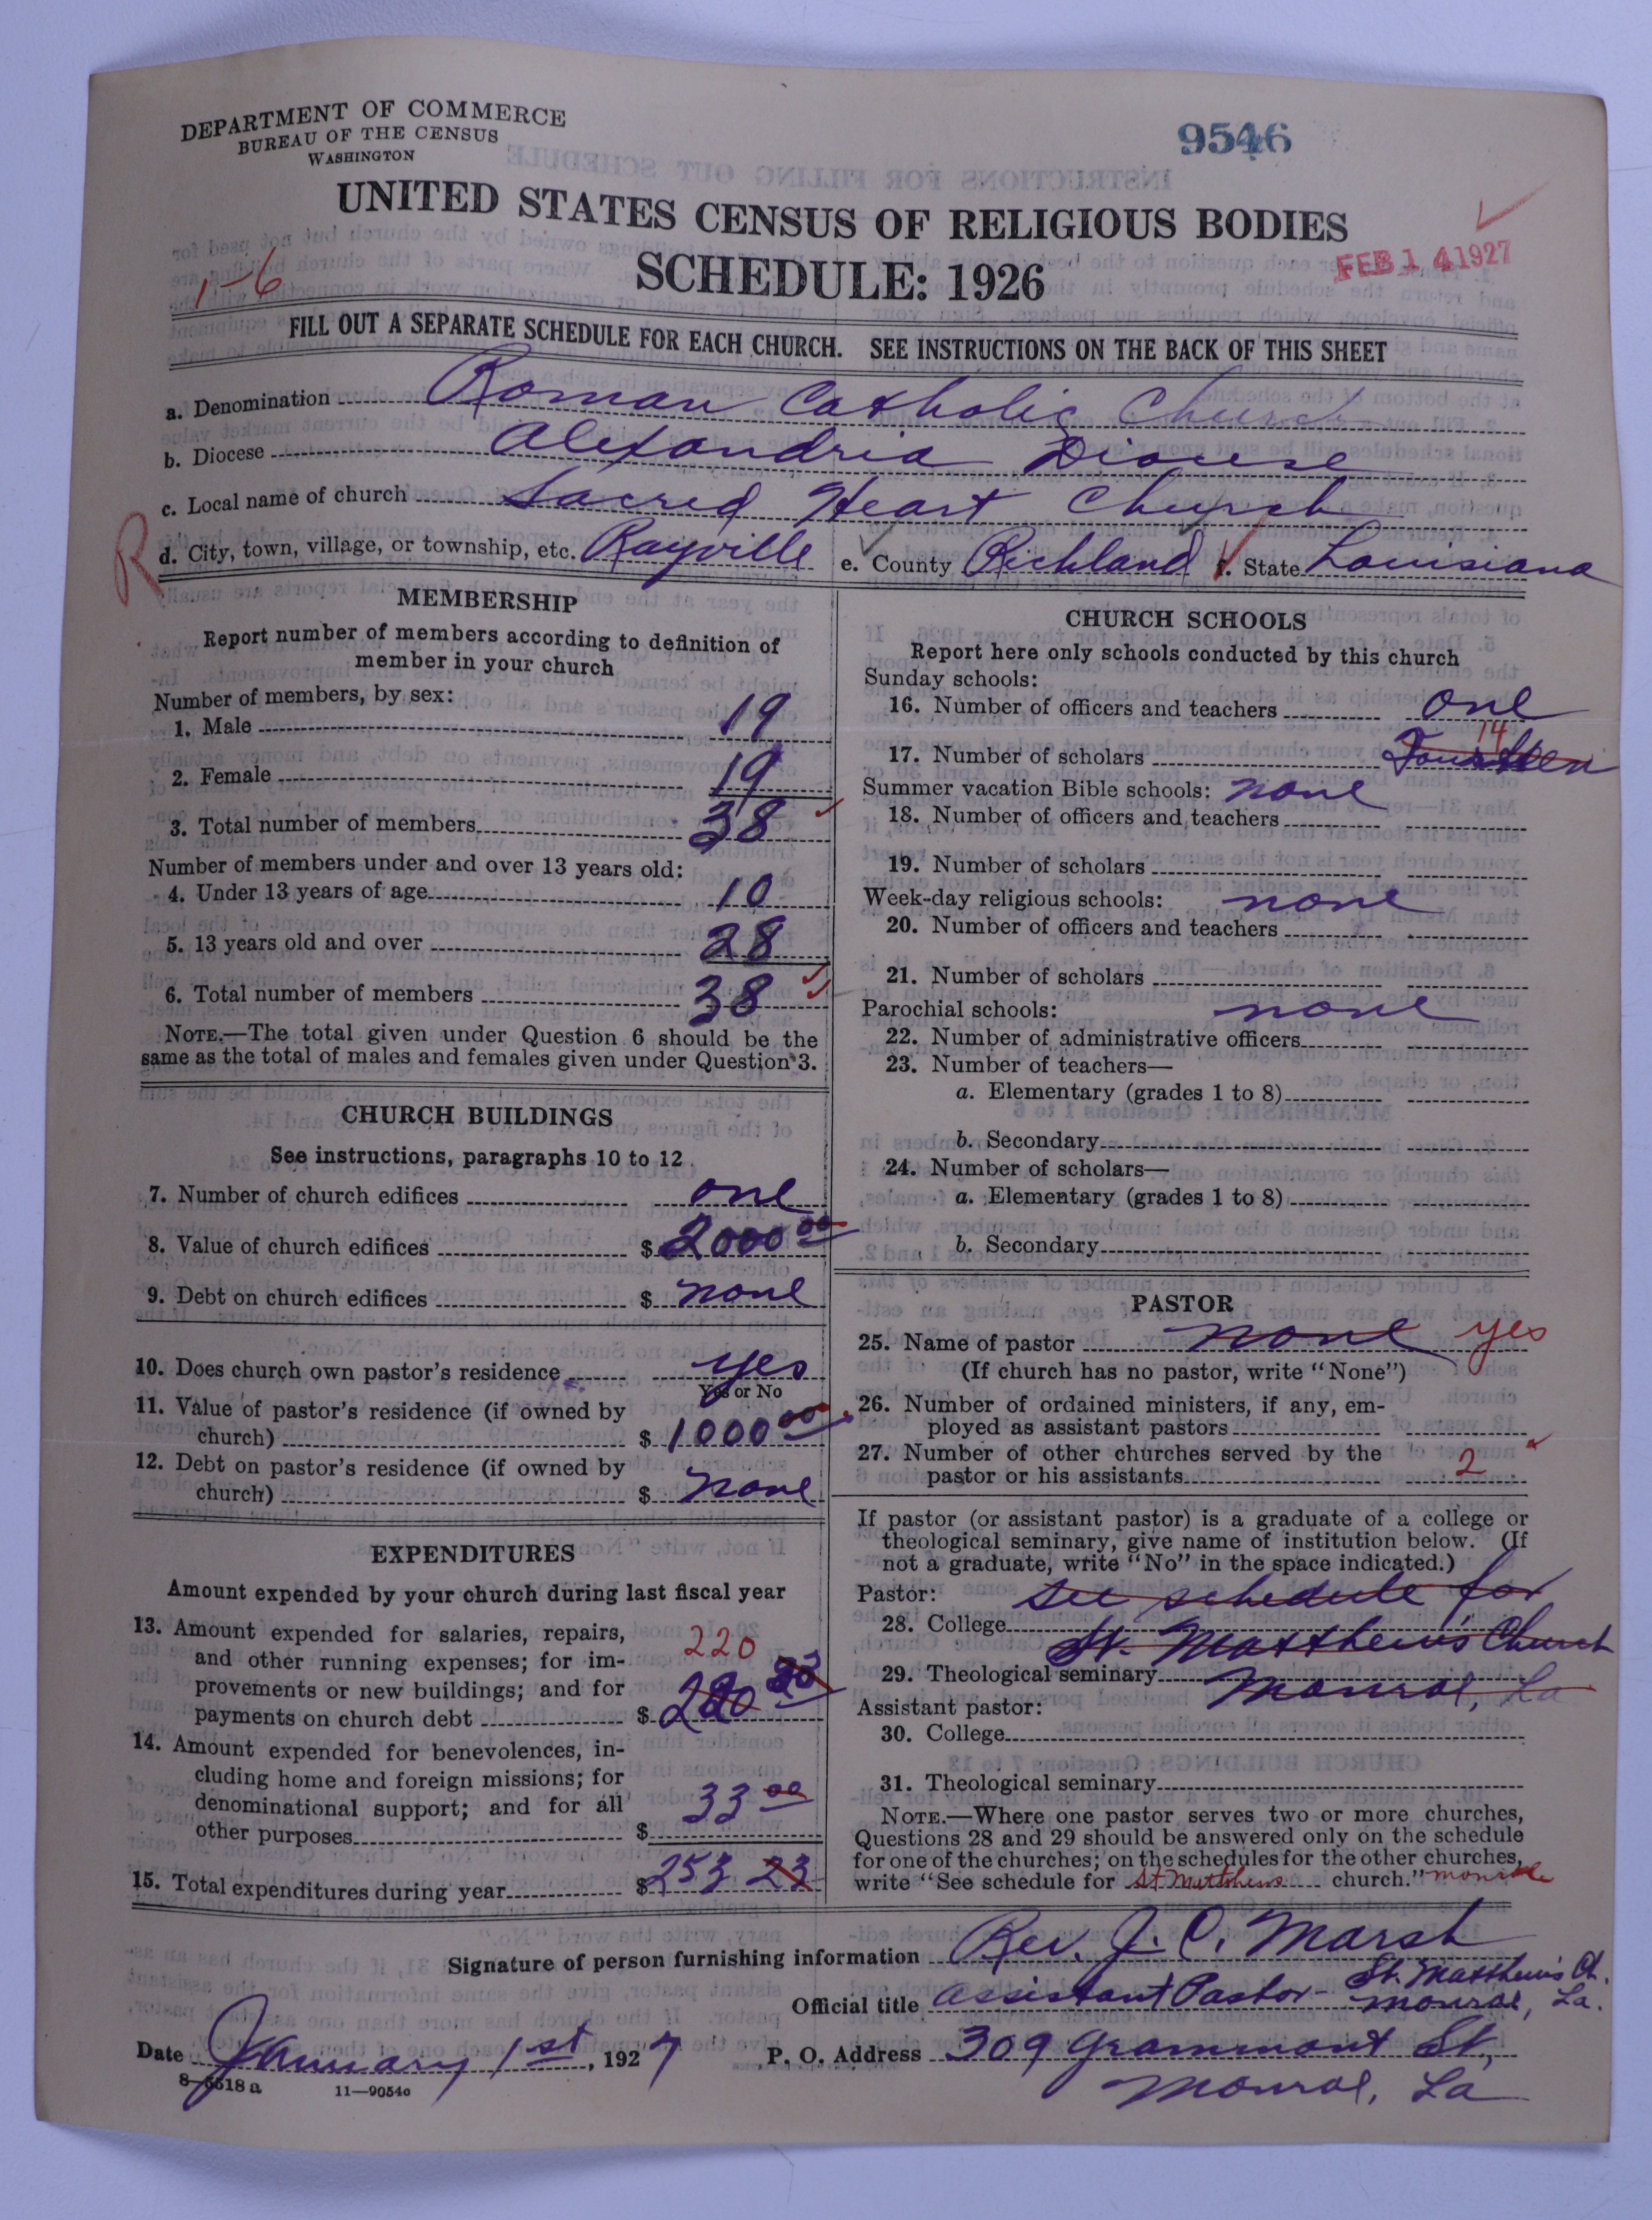 DEPARTMENT OF COMMERCE
BUREAU OF THE CENSUS
WASHINGTON
9546
UNITED STATES CENSUS OF RELIGIOUS BODIES
SCHEDULE: 1926
FEB 14 1927
1-6
FILL OUT A SEPARATE SCHEDULE FOR EACH CHURCH. SEE INSTRUCTIONS ON THE BACK OF THIS SHEET
a. Denomination Roman Catholic Church
b. Diocese Alexandria Diocese
c. Local name of church Sacred Heart Church
R
d. City, town, village, or township, etc. Rayville e. County Richland f. State Louisiana
MEMBERSHIP
Report number of members according to definition of
member in your church
Number of members, by sex:
1. Male 19
2. Female 19
3. Total number of members 38
Number of members under and over 13 years old:
4. Under 13 years of age 10
5. 13 years old and over 28
6. Total number of members 38
NOTE.—The total given under Question 6 should be the
same as the total of males and females given under Question 3.
CHURCH BUILDINGS
See instructions, paragraphs 10 to 12
7. Number of church edifices one
8. Value of church edifices $ 2000 00
9. Debt on church edifices $ none
10. Does church own pastor's residence yes
Yes or No
11. Value of pastor's residence (if owned by
church) $ 1000 00
12. Debt on pastor's residence (if owned by
church) $ none
EXPENDITURES
Amount expended by your church during last fiscal year
13. Amount expended for salaries, repairs,
and other running expenses; for im-
provements or new buildings; and for
payments on church debt $ 220
220
14. Amount expended for benevolences, in-
cluding home and foreign missions; for
denominational support; and for all
other purposes $ 33 00
15. Total expenditures during year $ 253 23
CHURCH SCHOOLS
Report here only schools conducted by this church
Sunday schools:
16. Number of officers and teachers one
17. Number of scholars Fourteen 14
Summer vacation Bible schools: none
18. Number of officers and teachers
19. Number of scholars
Week-day religious schools: none
20. Number of officers and teachers
21. Number of scholars
Parochial schools: none
22. Number of administrative officers
23. Number of teachers—
a. Elementary (grades 1 to 8)
b. Secondary
24. Number of scholars—
a. Elementary (grades 1 to 8)
b. Secondary
PASTOR
25. Name of pastor none yes
(If church has no pastor, write "None")
26. Number of ordained ministers, if any, em-
ployed as assistant pastors
27. Number of other churches served by the
pastor or his assistants 2
If pastor (or assistant pastor) is a graduate of a college or
theological seminary, give name of institution below. (If
not a graduate, write "No" in the space indicated.)
Pastor: See schedule for
28. College St. Matthew's Church
29. Theological seminary Monroe, La
Assistant pastor:
30. College
31. Theological seminary
NOTE.—Where one pastor serves two or more churches,
Questions 28 and 29 should be answered only on the schedule
for one of the churches; on the schedules for the other churches,
write "See schedule for St Matthews church." Monroe
Signature of person furnishing information Rev. J. C. Marsh
Official title Assistant Pastor - St. Matthew's Ch.
Monroe, La.
Date January 1st, 1927 P. O. Address 309 Grammont St,
Monroe, La
8-5518 a 11—9054a